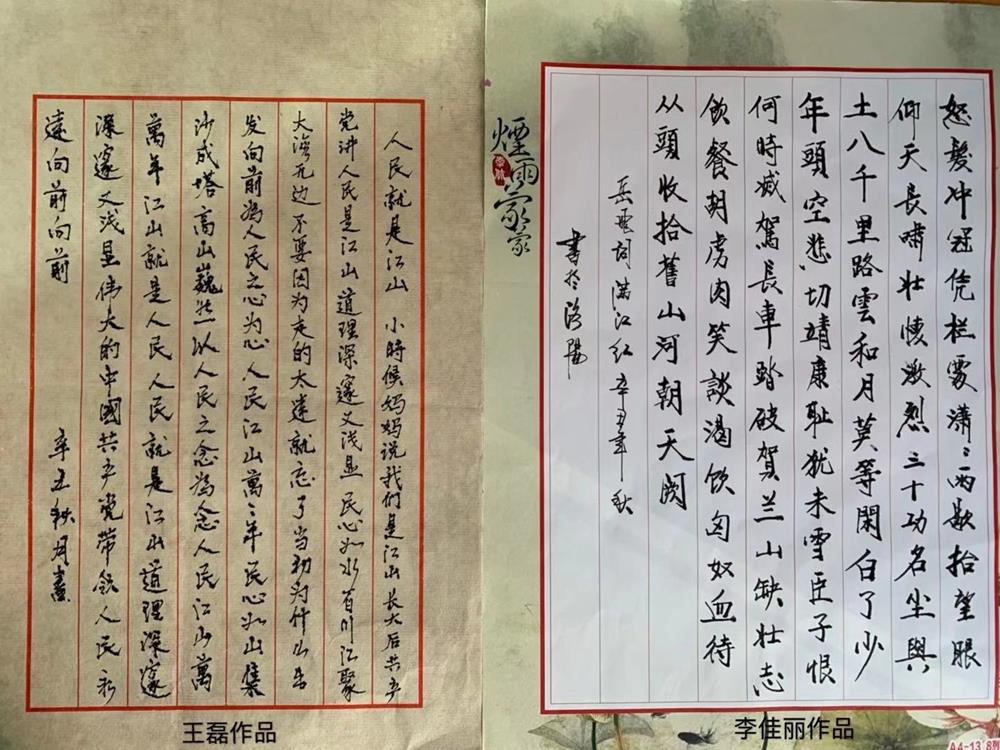 人民就是江山 小時候妈妈说我们是江山 长大后共产
党讲人民是江山 道理深邃又浅显 民心如水百川江聚
大海无边 不要因为走的太遠就忘了当初为什么出
发向前 為人民之心为心 人民江山萬〻年 民心如山集
沙成塔 高山巍然 以人民之念為念 人民江山萬
萬年 江山就是人民 人民就是江山 道理深邃
深邃又浅显 伟大的中國共产党带领人民永
遠向前向前
辛丑秋月書
王磊作品
煙雨蒙蒙
怒髮冲冠凭栏處瀟〻雨歇抬望眼
仰天長嘯壮懷激烈三十功名尘與
土八千里路雲和月莫等閑白了少
年頭空悲切靖康耻犹未雪臣子恨
何時减駕長車踏破賀兰山缺壮志
飢餐胡虏肉笑談渴饮匈奴血待
从頭收拾舊山河朝天阙
岳飛詞满江红辛丑年秋
書於洛陽
李佳丽作品